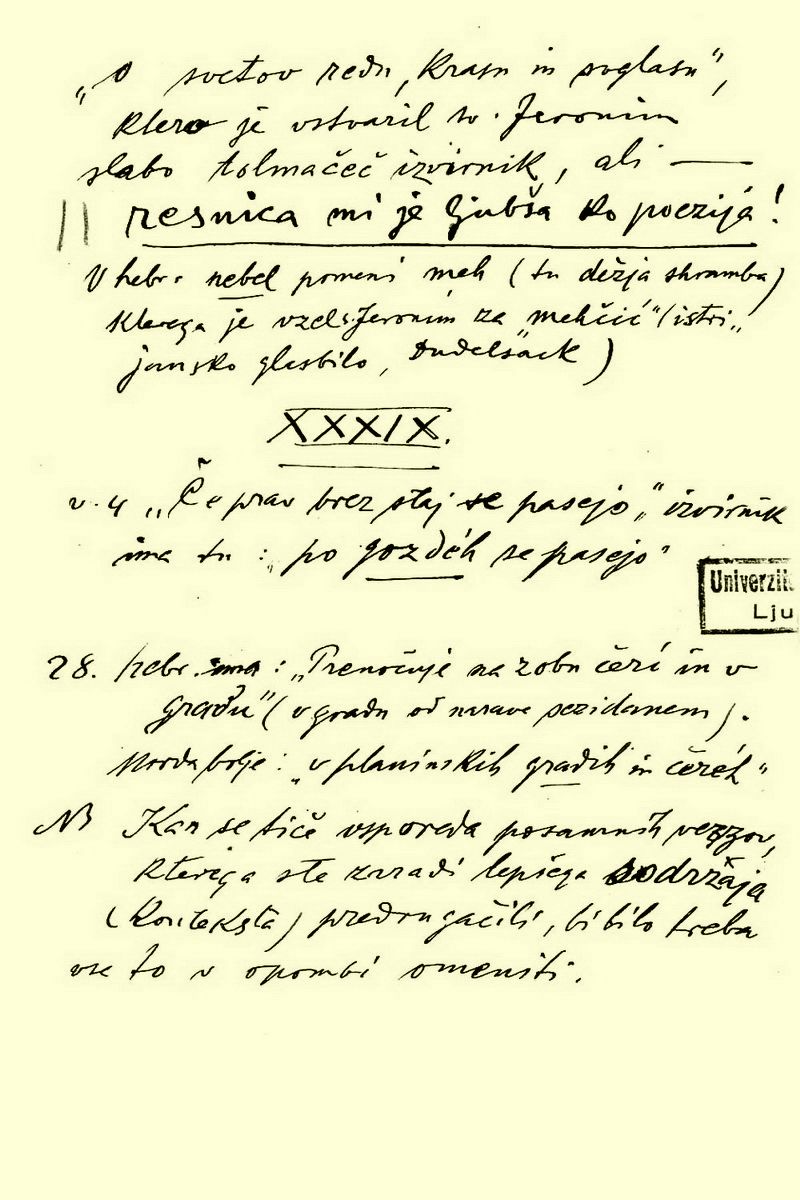 „O svetov redu, krasu in soglasu",
ktero je vstvaril sv. Jeronim
slabo tolmačeč izvirnik, ali —
resnica mi je ljubša ko poezija!
V hebr. nebel pomeni meh (tu dežja shramba)
kterega je vzel s. Jeronim za "mehčić" (istri„
jansko glasbilo, Dudelsack)
XXXIX.
v. 4 „Če prav brez staj se pasejo," izvirnik
ima tu: „po gozdéh se pasejo"
Univerzit
Lju
28. hebr. ima: „Prenočuje na zobu čeri in v
gradu" (v gradu od narave sezidanem).
Morda bolje: „v planinskih gradih in čeréh"
NB Kar se tiče vsporeda posamnih verzov,
kterega ste zaradi lepšega sodržaja
(konteksta) predrugačili, bi bilo treba
vse to v opombi omeniti.